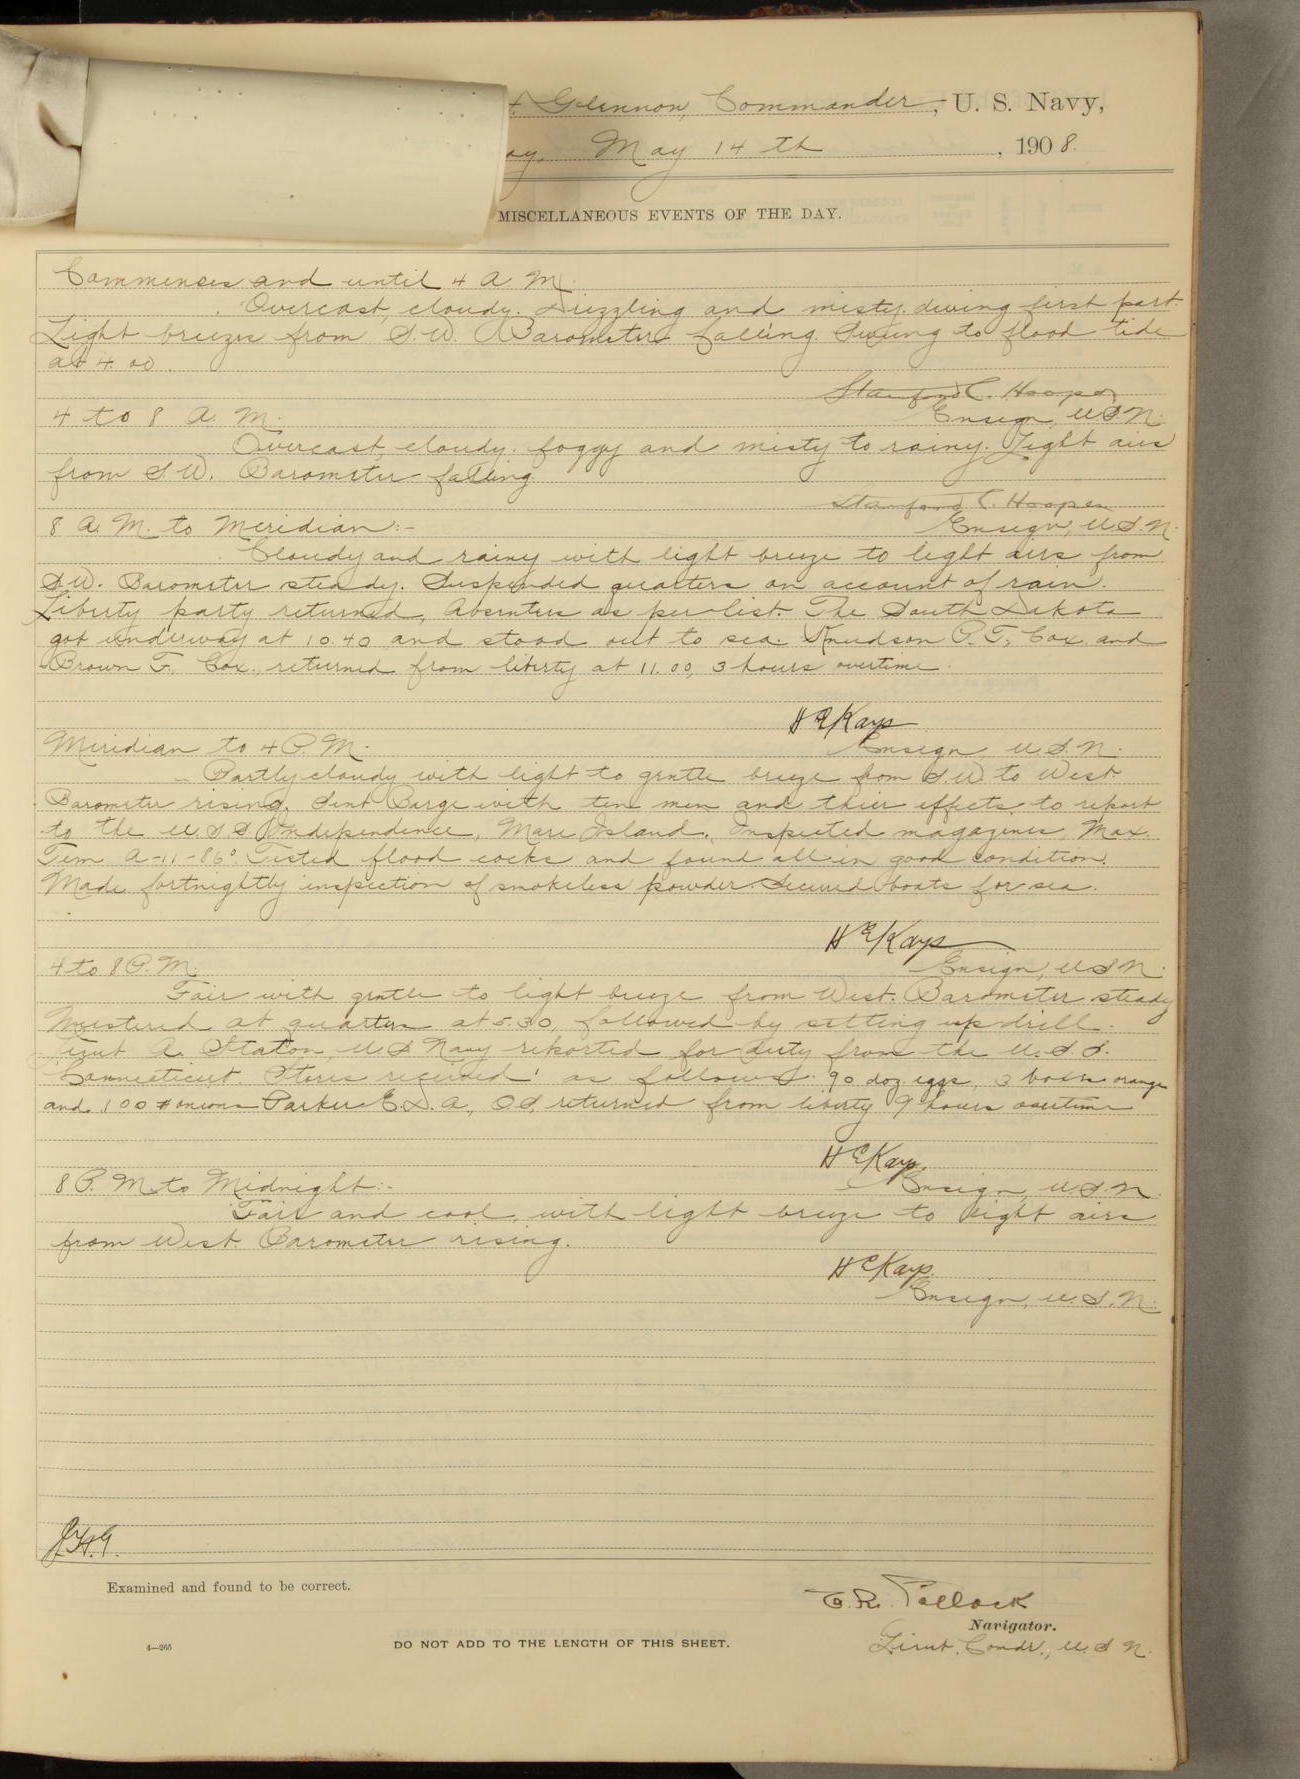 H. Glennon, Commander, U. S. Navy,
ay, May 14th, 1908.
MISCELLANEOUS EVENTS OF THE DAY.
Commences and until 4 A. M.
Overcast, cloudy. Drizzling and misty during first part.
Light breezes from S.W. Barometer falling. Swung to flood tide
at 4.00.
Stanford C. Hooper
4 to 8 A. M.
Ensign, U.S.N.
Overcast, cloudy. foggy and misty to rainy. Light airs
from S.W. Barometer falling.
Stanford C. Hooper
8 A. M. to Meridian:-
Ensign, U.S.N.
Cloudy and rainy with light breeze to light airs from
S.W. Barometer steady. Suspended quarters on account of rain.
Liberty party returned, Absentees as per list. The South Dakota
got underway at 10.40 and stood out to sea. Knudson P. T., Cox. and
Brown F. Cox. returned from liberty at 11.00, 3 hours overtime.
H E Kays
Meridian to 4 P.M.
Ensign U.S.N.
Partly cloudy with light to gentle breeze from S.W. to West.
Barometer rising. Sent Barge with ten men and their effects to report
to the U.S.S. Independence, Mare Island. Inspected magazines, Max.
Tem. A-11-86°. Tested flood cocks and found all in good condition.
Made fortnightly inspection of smokeless powder. Secured boats for sea.
H E Kays
4 to 8 P. M.
Ensign, U.S.N.
Fair with gentle to light breeze from West. Barometer steady
Mustered at quarters at 5.30, followed by setting up drill.
Lieut A. Staton, U.S. Navy reported for duty from the U.S.S.
Connecticut. Stores received as follows: 90 doz eggs, 3 boxes oranges
and 100 # onions Parker E.D.A., O.S. returned from liberty 9 hours overtime
H E Kays.
8 P. M. to Midnight:-
Ensign, U.S.N.
Fair and cool, with light breeze to light airs
from West. Barometer rising.
H E Kays.
Ensign, U.S.N.
J.H.G.
Examined and found to be correct.
E.R. Pollock
Navigator.
4—265
DO NOT ADD TO THE LENGTH OF THIS SHEET.
Lieut. Comdr., U.S.N.